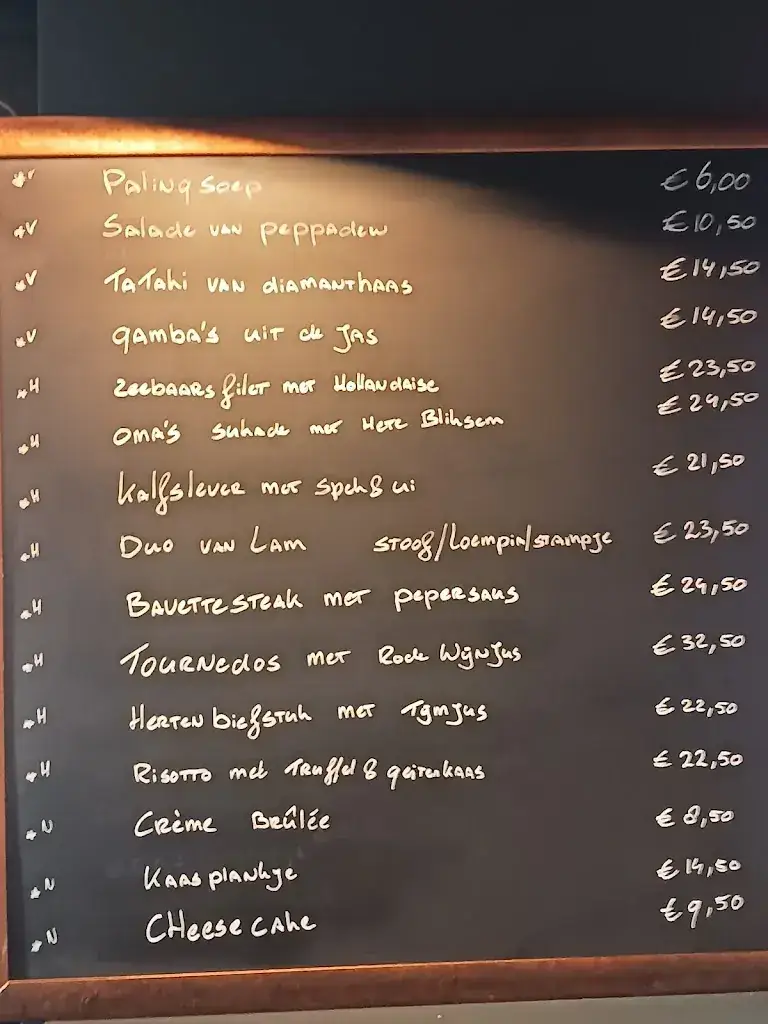 *V Palingsoep € 6,00
*V Salade van peppadew € 10,50
*V TaTaki van diamanthaas € 14,50
*V gamba's uit de Jas € 14,50
*H Zeebaarsfilet met Hollandaise € 23,50
*H Oma's sukade met Hete Bliksem € 24,50
*H Kalfslever met spek & ui € 21,50
*H Duo van Lam stoof/Loempia/stampje € 23,50
*H Bavettesteak met pepersaus € 24,50
*H Tournedos met Rode WijnJus € 32,50
*H Herten biefstuk met TijmJus € 22,50
*H Risotto met Truffel & geitenkaas € 22,50
*N Crème Brûlée € 8,50
*N Kaas plankje € 14,50
*N CHeese cake € 9,50